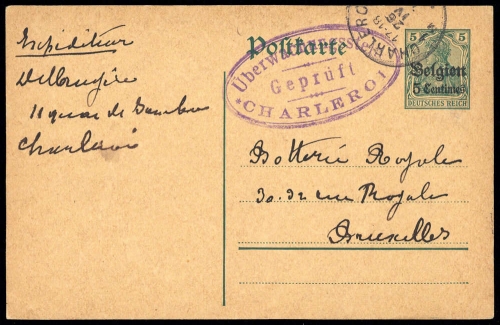 Expéditeur
11 quai de Sambre
Charleroi
Postkarte
Überwachungsstelle
Geprüft
*CHARLEROI
CHARLEROI
5 5
Belgien
5 Centimes
DEUTSCHES REICH
Botterie Royale
30.32 rue Royale
Bruxelles